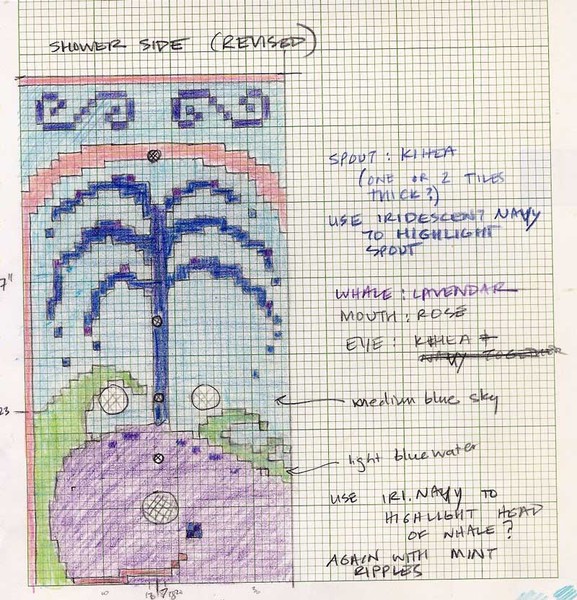 SHOWER SIDE (REVISED)
SPOUT: KIHEA
(ONE OR 2 TILES
THICK?)
USE IRIDESCENT NAVY
TO HIGHLIGHT
SPOUT
7"
WHALE: LAVENDAR
MOUTH: ROSE
EYE: KIHEA &
NAVY TOGETHER
23
medium blue sky
light blue water
USE IRI. NAVY TO
HIGHLIGHT HEAD
OF WHALE?
AGAIN WITH MINT
RIPPLES